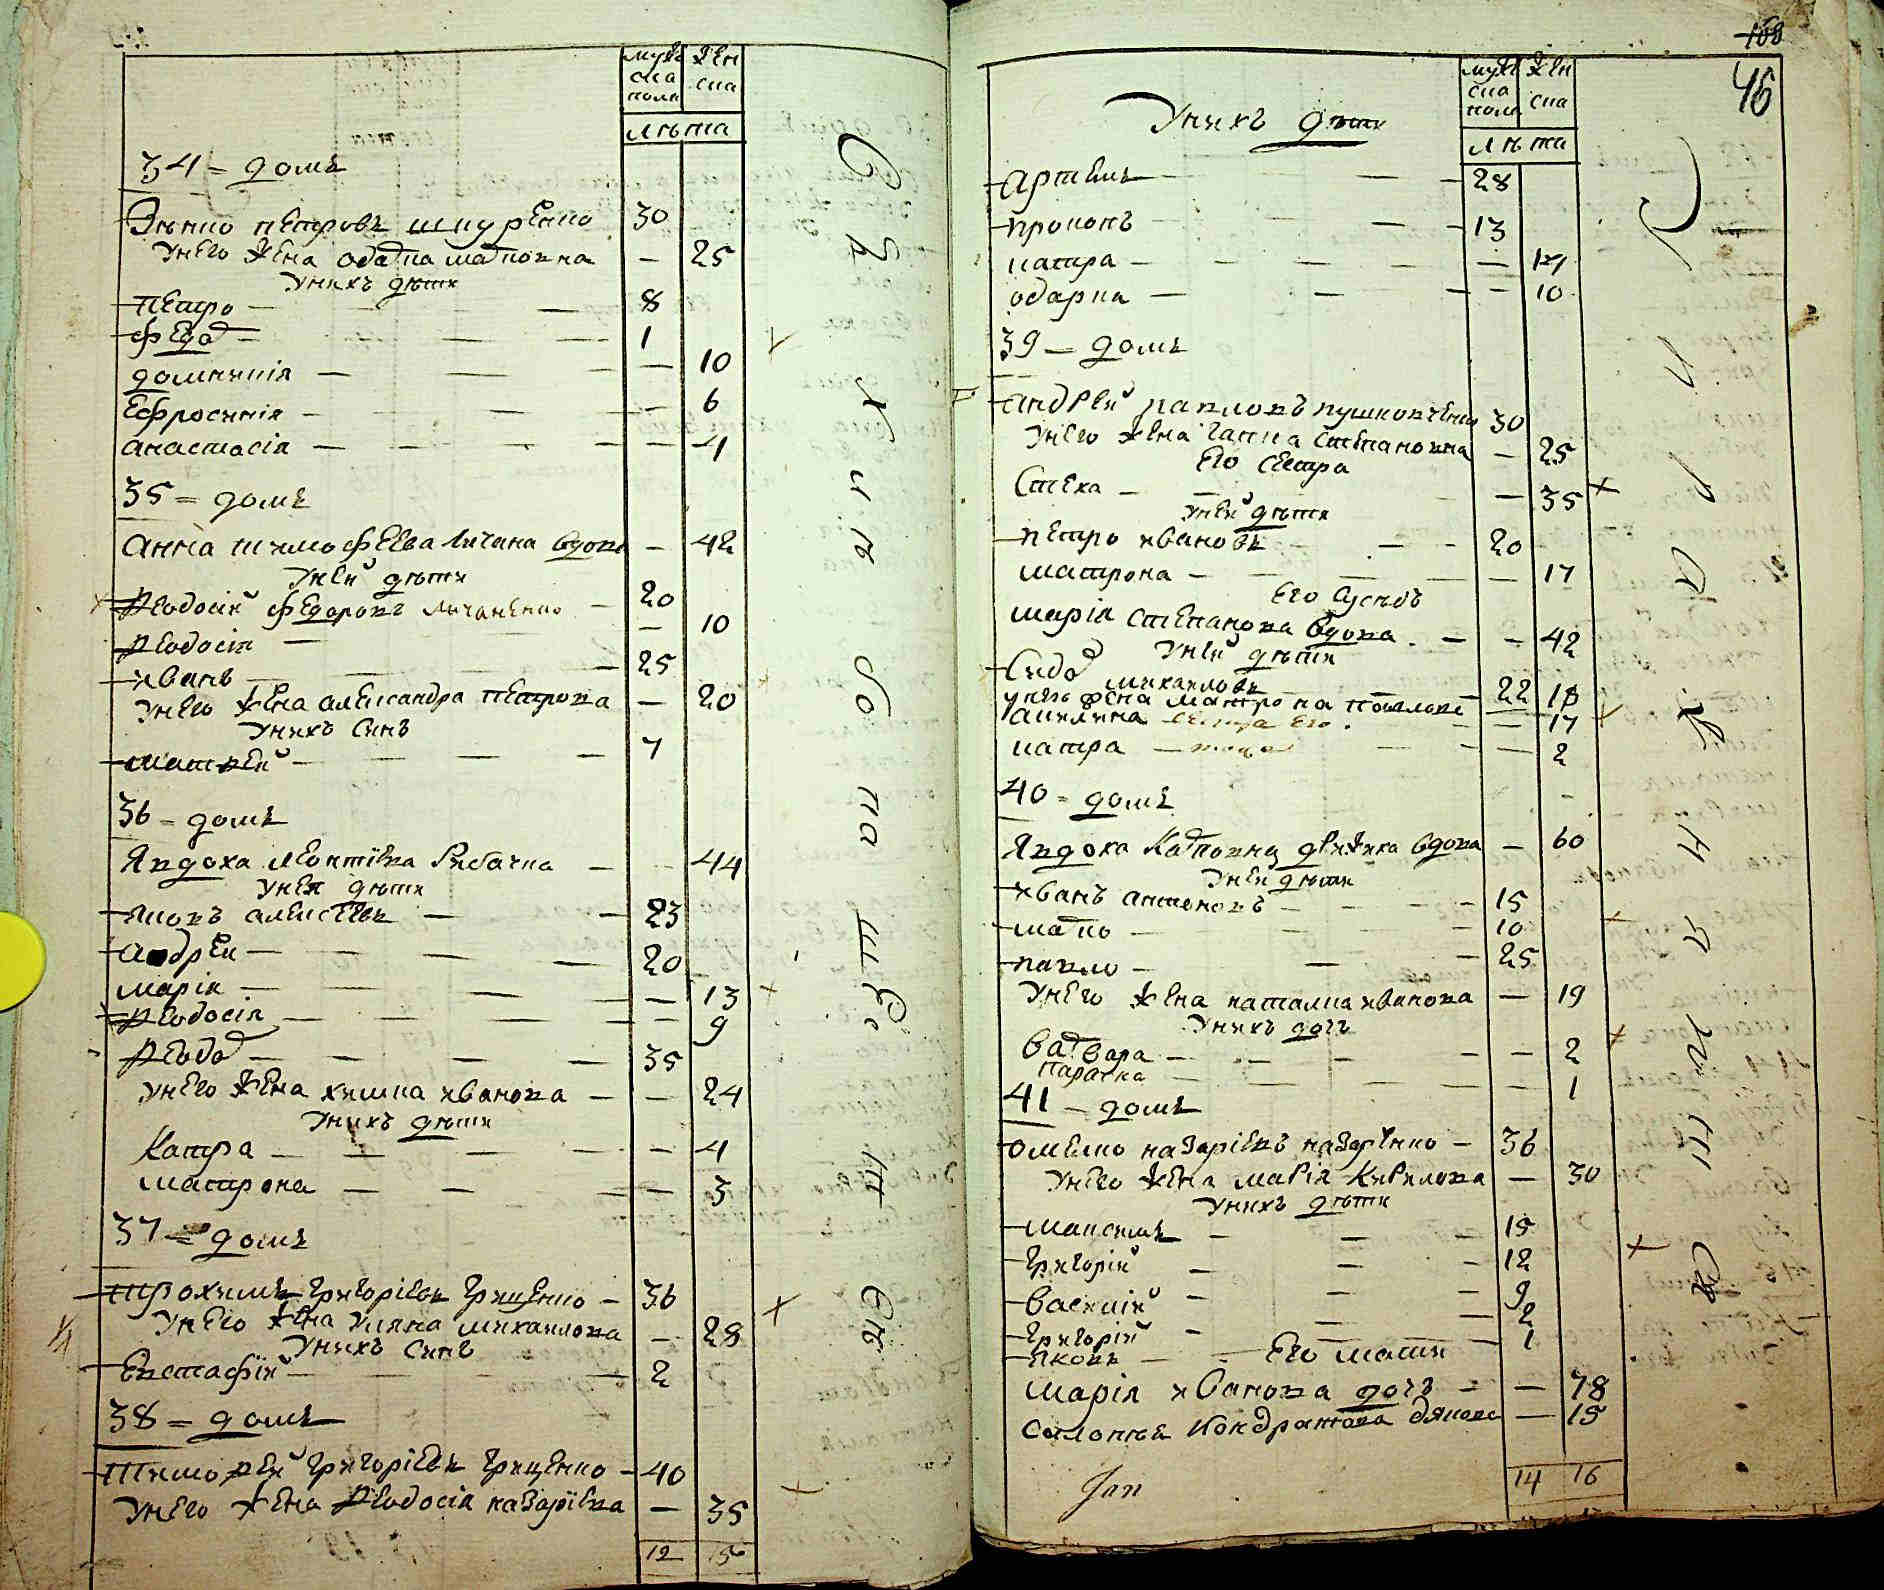 муж
ска
полк
жен
ска
лѣта
34 = домъ
Зѣнко петровъ шкуренко 30
унего жена одарка марковна — 25
унихъ дѣти
петро — 8
федор — 1
домникія — 10
Ефросинія — 6
анастасія — 4
35 = домъ
Анна тимофеева вдова — 42
уней дѣти
Феодосій федоровъ личаненко — 20
Феодосія — 10
иванъ — 25
унего жена александра петрова — 20
унихъ синъ
матвей — 7
36 = домъ
Явдоха леонтіева Рибачка — 44
уней дѣти
яковъ алексеевъ — 23
андрей — 20
марія — 13
Феодосія — 9
Федор — 35
унего жена химка иванова — 24
унихъ дѣти
Катра — 4
матрона — 3
37 = домъ
трохимъ григоріевъ гриценко — 36
унего жена уляна михаилова — 28
унихъ синъ
Евстафій — 2
38 = домъ
Тимофей григоріевъ гриценко — 40
унего жена Феодосія назаріева — 35
12 15
160
46
муж
ска
пола
жен
ска
лѣта
Унихъ дѣти
артемъ — 28
прокопъ — 13
катра — 17
одарка — 10
39 — домъ
андрей павловъ пушковченко 30
унего жена ганна степановна — 25
Его сестра
Стеха — 35
уней дѣти
петро ивановъ — 20
матрона — 17
Его сусѣдъ
марія степанова вдова — 42
уней дѣти
Сидор михаиловъ 22
унего жена матрона павлова 18
акилина сестра его — 17
катра — 2
40 = домъ
Явдоха Карповна вдова — 60
уней дѣти
иванъ антоновъ — 15
марко — 10
павло — 25
унего жена наталка иванова — 19
унихъ дочъ
варвара — 2
параска — 1
41 — домъ
омелко назаріевъ назаренко — 36
унего жена марія Кирилова — 30
унихъ дѣти
максимъ — 15
григорій — 12
василій — 9
григорій — 2
яковъ — 1
Его мати
марія иванова дочъ — 78
соломѣя кондратова — 15
14 16